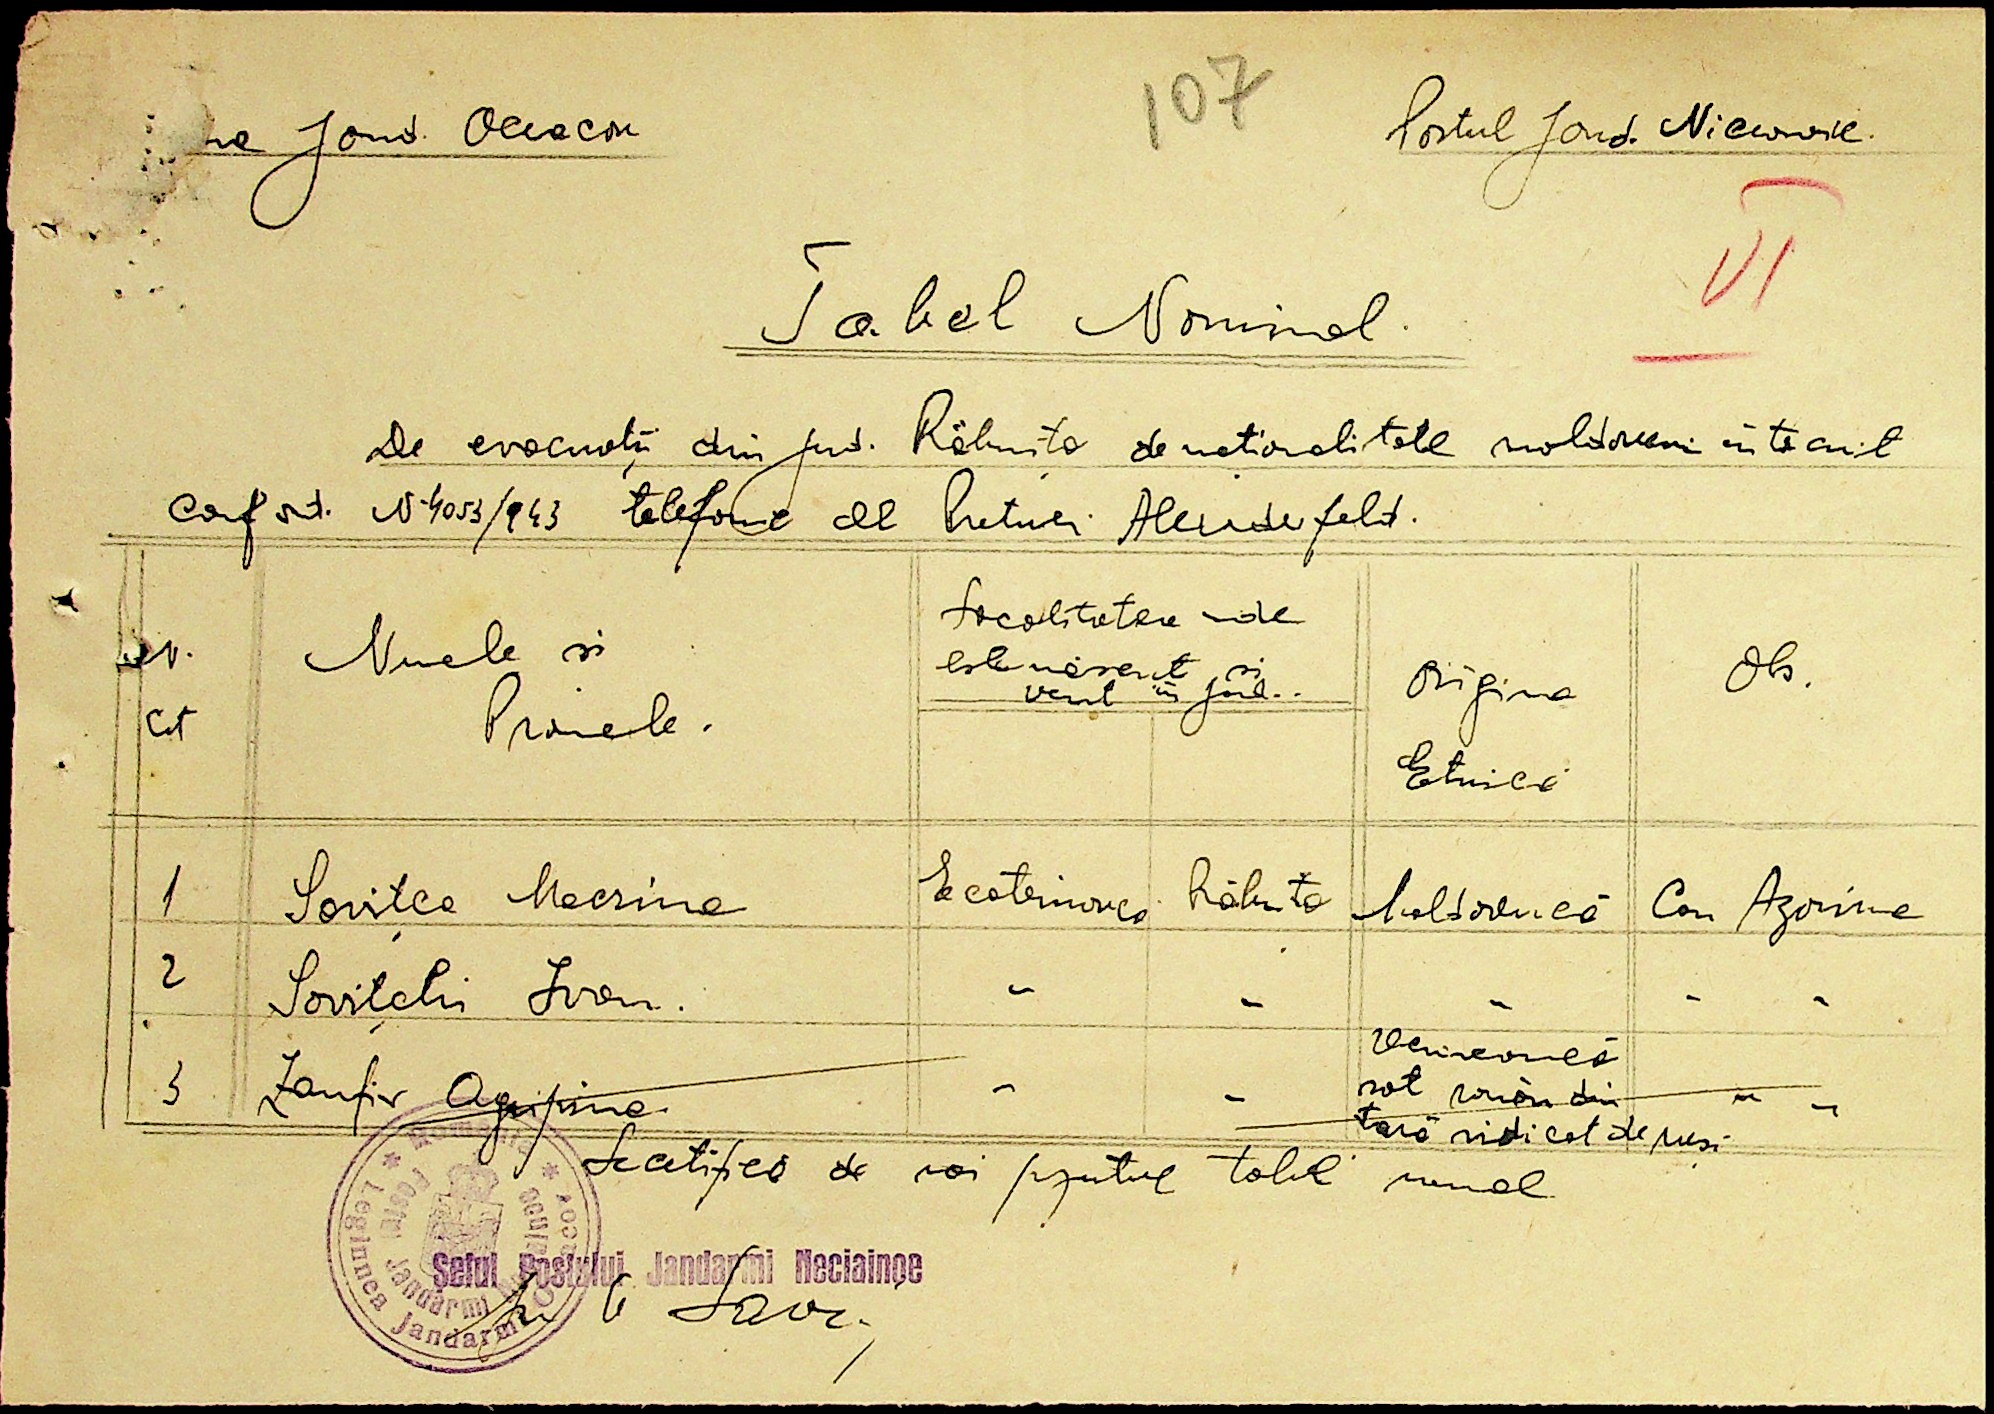 Jand. Oceacov
107
Postul Jand.
VI
Tabel Nominal.
De evacuații din jud. Râbnița de naționalitate moldoveni întocmit
conf ord. Nr 4053/943 telefonic al Preturei Alexanderfeld.
N.
Crt
Numele si
Pronumele.
Localitatea unde
este născut si
venit în jud..
Origina
Etnică
Obs.
1 Sovițca Macrina Ecaterinovca Râbnița Moldovencă Con Azorina
2 Sovițchi Ivan. " " " " "
3 Zanfir Agripina. " " Ucraineancă " "
sot român din
țară ridicat de ruși
Certifică de noi prezentul tabel nominal
Șeful Postului Jandarmi Neciaince
România
Legiunea Jandarmi Oceacov
Postul Jandarmi